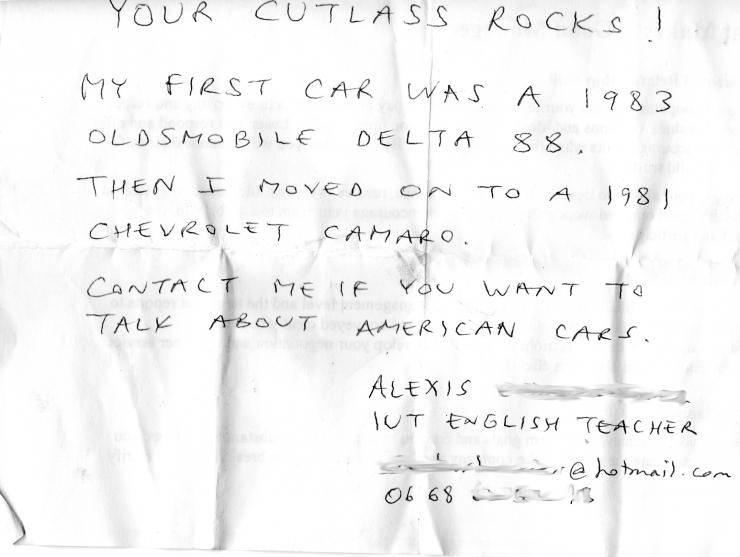 YOUR CUTLASS ROCKS!
MY FIRST CAR WAS A 1983
OLDSMOBILE DELTA 88.
THEN I MOVED ON TO A 1981
CHEVROLET CAMARO.
CONTACT ME IF YOU WANT TO
TALK ABOUT AMERICAN CARS.
ALEXIS
IUT ENGLISH TEACHER
@hotmail.com
06 68